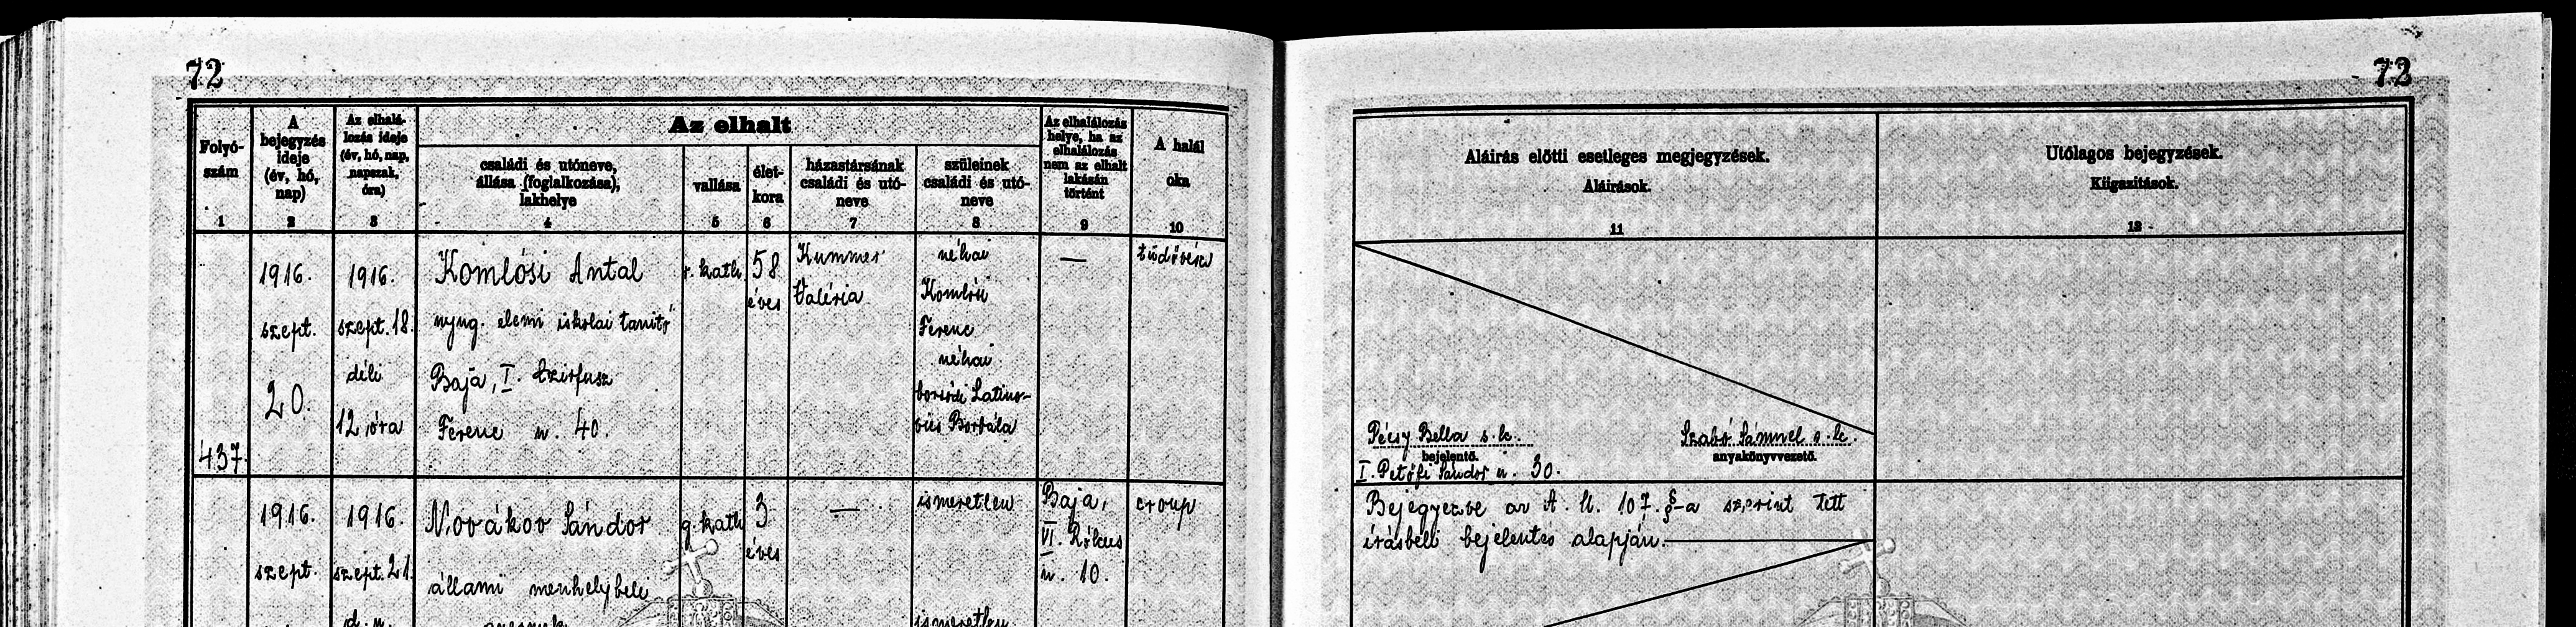 72
72
Az elhalt
Folyó-
szám
A
bejegyzés
ideje
(év, hó,
nap)
Az elhalá-
lozás ideje
(év, hó, nap,
napszak,
óra)
családi és utóneve,
állása (foglalkozása),
lakhelye
vallása
élet-
kora
házastársának
családi és utó-
neve
szüleinek
családi és utó-
neve
Az elhalálozás
helye, ha az
elhalálozás
nem az elhalt
lakásán
történt
A halál
oka
Aláirás előtti esetleges megjegyzések.
Aláirások.
Utólagos bejegyzések.
Kiigazitások.
1
2
3
4
5
6
7
8
9
10
11
12
437.
1916.
szept.
20.
1916.
szept. 18.
déli
12 óra
Komlósi Antal
nyug. elemi iskolai tanitó
Baja, I.
Ferenc u. 40.
r. kath.
58
éves
Kummer
Valéria
néhai
Komlósi
Ferenc
néhai
Latino-
vics Borbála
—
tüdővész
Pécsy Bella s. k.
bejelentő.
I. Petőfi Sándor u. 30.
Szabó Sámuel s. k.
anyakönyvvezető.
1916.
szept.
1916.
szept. 21.
d. u.
Novákov Sándor
állami menhelybeli
gyermek
g. kath.
3
éves
—
ismeretlen
ismeretlen
Baja,
VI. Rókus
u. 10.
croup
Bejegyezve az A. U. 107. §-a szerint tett
írásbeli bejelentés alapján.